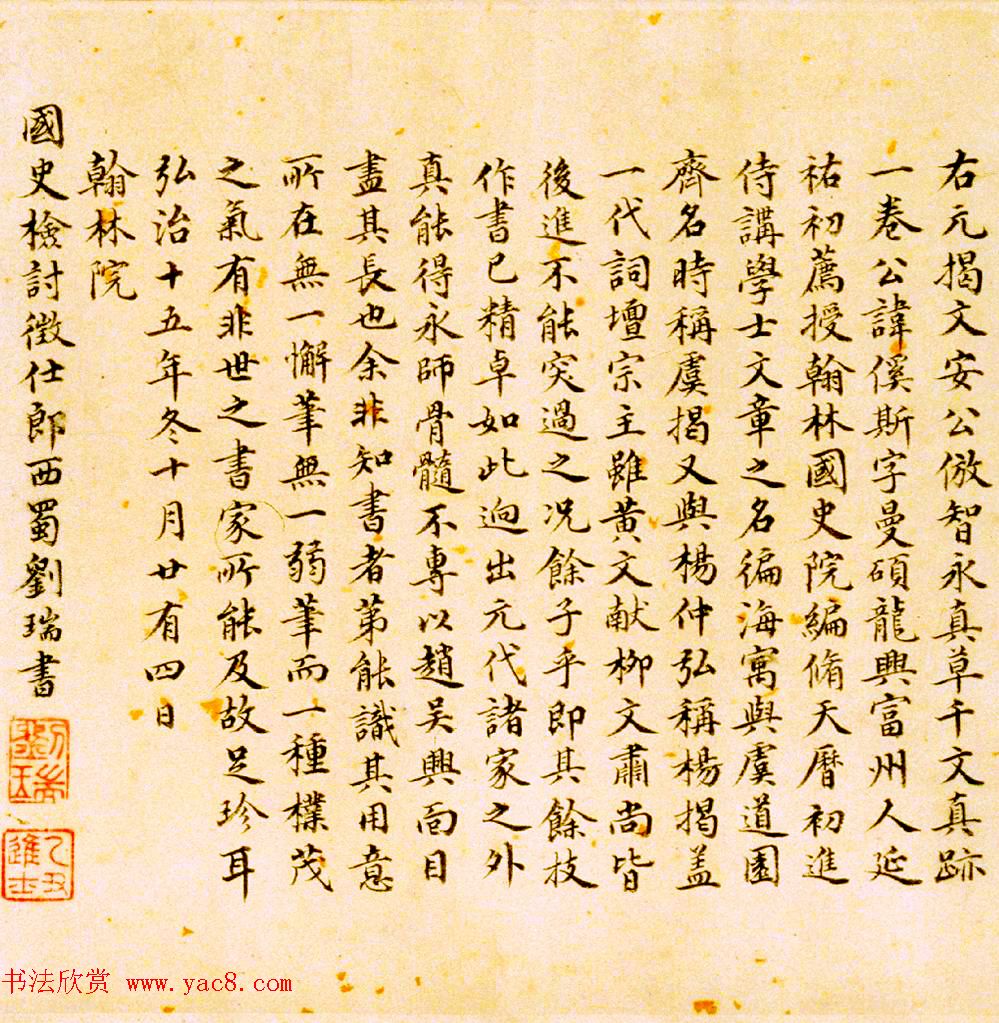 右元揭文安公倣智永真草千文真跡
一卷公諱傒斯字曼碩龍興富州人延
祐初薦授翰林國史院編脩天曆初進
侍講學士文章之名徧海寓與虞道園
齊名時稱虞揭又與楊仲弘稱楊揭盖
一代詞壇宗主雖黃文献柳文肅尚皆
後進不能突過之况餘子乎即其餘技
作書已精卓如此逈出元代諸家之外
真能得永師骨髓不專以趙吴興面目
盡其長也余非知書者第能識其用意
所在無一懈筆無一弱筆而一種樸茂
之氣有非世之書家所能及故足珍耳
弘治十五年冬十月廿有四日
翰林院
國史檢討徴仕郎西蜀劉瑞書
劉瑞
進士
书法欣赏 www.yac8.com